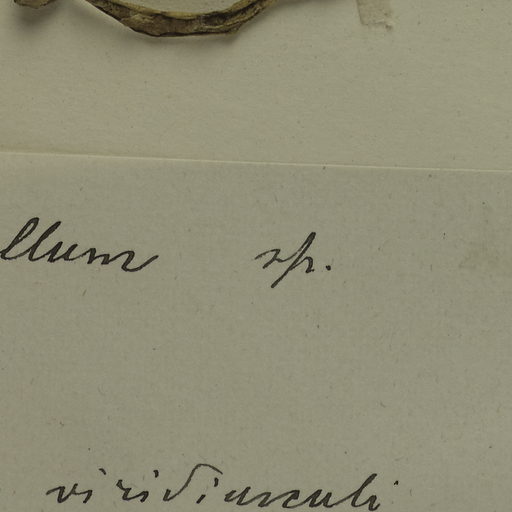 llum sp.
viridiusculi